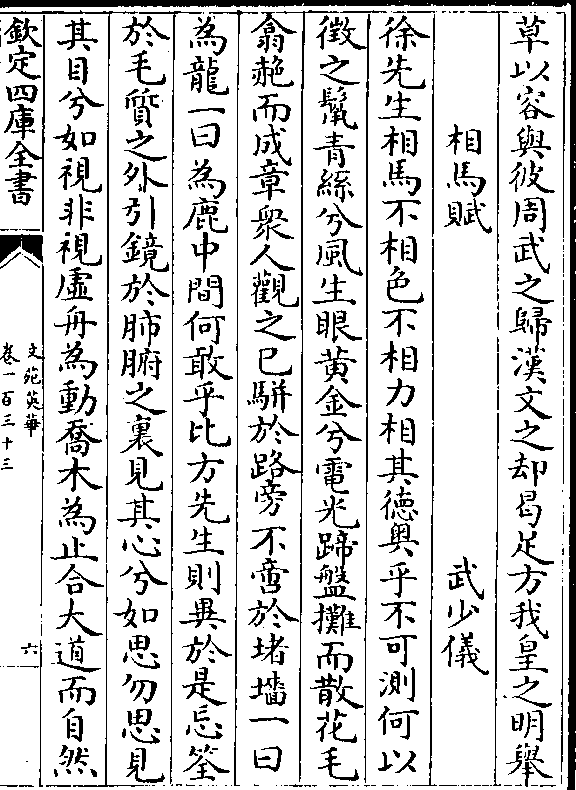 草以容與彼周武之歸漢文之却曷足方我皇之明舉
相馬賦 武少儀
徐先生相馬不相色不相力相其德奥乎不可測何以
徵之鬣青絲兮風生眼黄金兮電光蹄盤攤而散花毛
翕赩而成章衆人觀之已駢於路旁不啻於堵墻一曰
為龍一曰為鹿中間何敢乎比方先生則異於是忘筌
於毛質之外引鏡於肺腑之裏見其心兮如思勿思見
其目兮如視非視虛舟為動喬木為止合大道而自然
欽定四庫全書
文苑英華
卷一百三十三
六